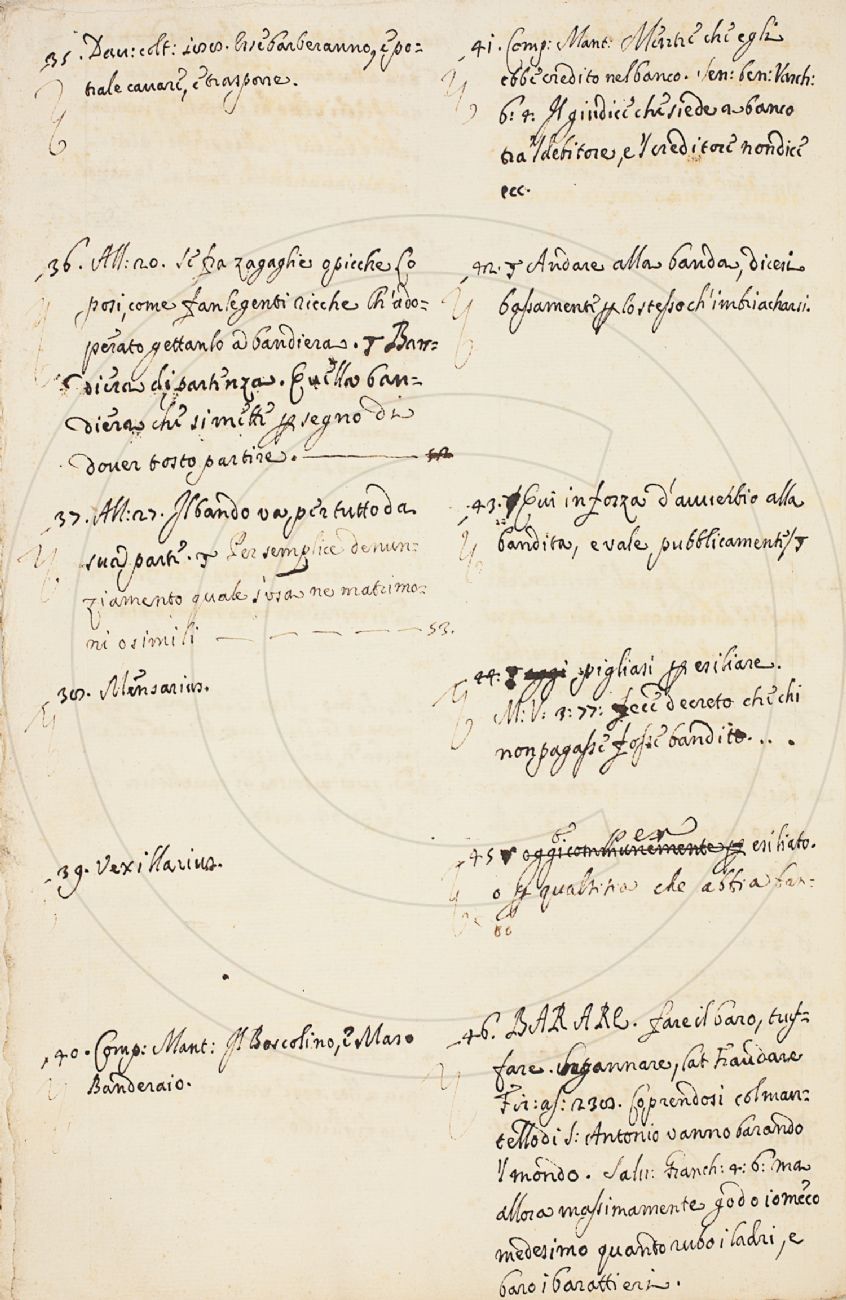 35. Dav: colt: 
barberanno, e po-
trale cavare, e trasporre.
36. All: 20. Se fra zagaglie o picche Co
posi, come fan le genti ricche Ch'ado-
perato gettanlo a bandiera. Ban-
diera di partenza. Quella ban-
diera che si mette p segno di
dover tosto partire. 52
37. All: 27. Il bando va, per tutto da
sua parte. Per semplice denun-
ziamento quale s'usa ne matrimo-
ni o simili 53.
38. Mensarius.
39. Vexillarius.
40. Comp: Mant: Il Boscolino, e Maso
Banderaio.
41. Comp: Mant: Mentre che egli
ebbe credito nel banco. Sen: ben: Varch:
6: 4: Il giudice che siede a banco
tra 'l debitore, e 'l creditore non dice
ecc.
42. Andare alla banda, dicesi
bassamente p lo stesso ch'imbriacharsi.
43. Qui in forza d'avverbio alla
bandita, e vale, pubblicamente
44. oggi pigliasi p esiliare.
M: V: 3: 77: fece decreto che chi
non pagasse fosse bandito...
45 oggi communemente p esiliato.
o p qualsisia che abbia ban-
do
46. BARARE. fare il baro, truf-
fare. Ingannare, lat Fraudare
Fir: as: 238. Coprendosi col man-
tello di S: Antonio vanno barando
'l mondo. Salv: Granch: 4: 6: ma
allora massimamente godo io meco
medesimo quanto rubo i ladri, e
baro i barattieri.